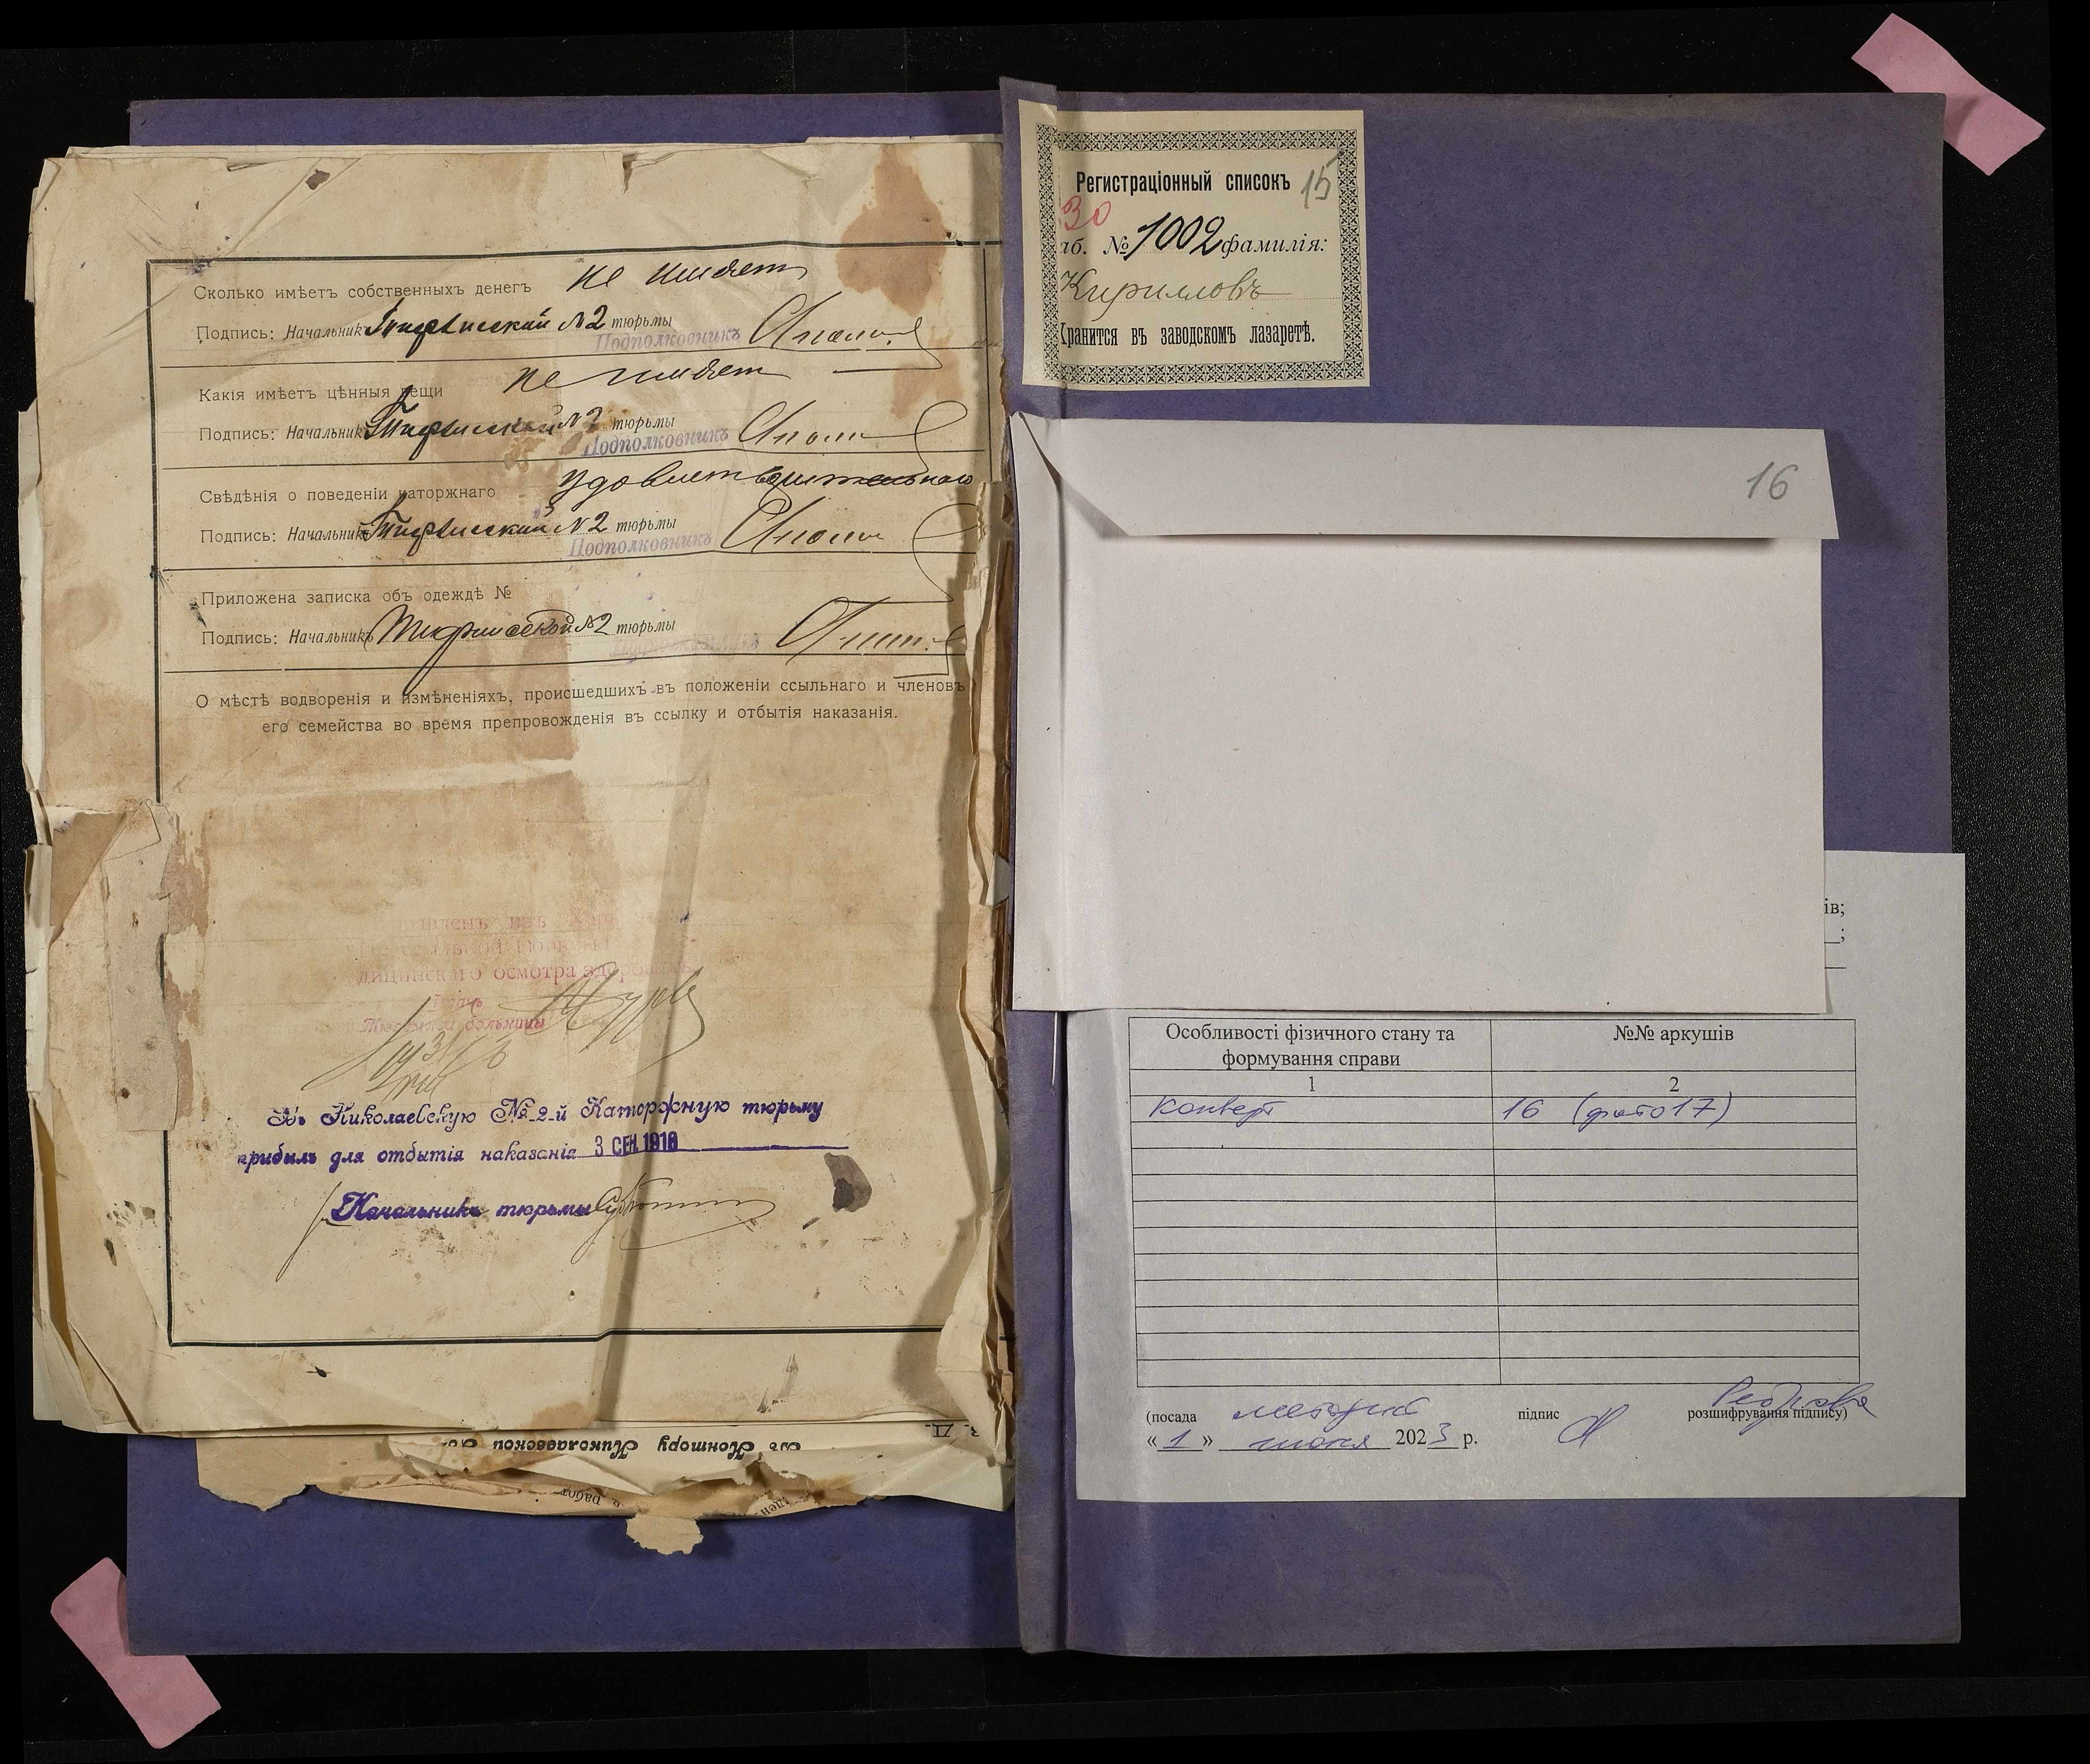 Сколько имѣетъ собственныхъ денегъ не имѣетъ
Подпись: Начальникъ Тифлисской №2 тюрьмы
Подполковникъ
Какія имѣетъ цѣнныя вещи не имѣетъ
Подпись: Начальникъ Тифлисской №2 тюрьмы
Подполковникъ
Свѣдѣнія о поведеніи каторжнаго удовлетворительнаго
Подпись: Начальникъ Тифлисской №2 тюрьмы
Подполковникъ
Приложена записка объ одеждѣ №
Подпись: Начальникъ Тифлисской №2 тюрьмы
О мѣстѣ водворенія и измѣненіяхъ, происшедшихъ въ положеніи ссыльнаго и членовъ
его семейства во время препровожденія въ ссылку и отбытія наказанія.
дицинскаго осмотра
больницы
Въ Николаевскую №-2-й Каторжную тюрьму
прибылъ для отбытія наказанія 3 СЕН. 1916
Начальникъ тюрьмы
Въ Контору Николаевской
работ
Регистраціонный списокъ 15
30
аб. № 1002 фамилія:
Кирилловъ
Хранится въ заводскомъ лазаретѣ.
16
ів;
;
Особливості фізичного стану та формування справи
№№ аркушів
1 2
конверт 16 (фото17)
(посада підпис розшифрування підпису)
« 1 » июня 2023 р.